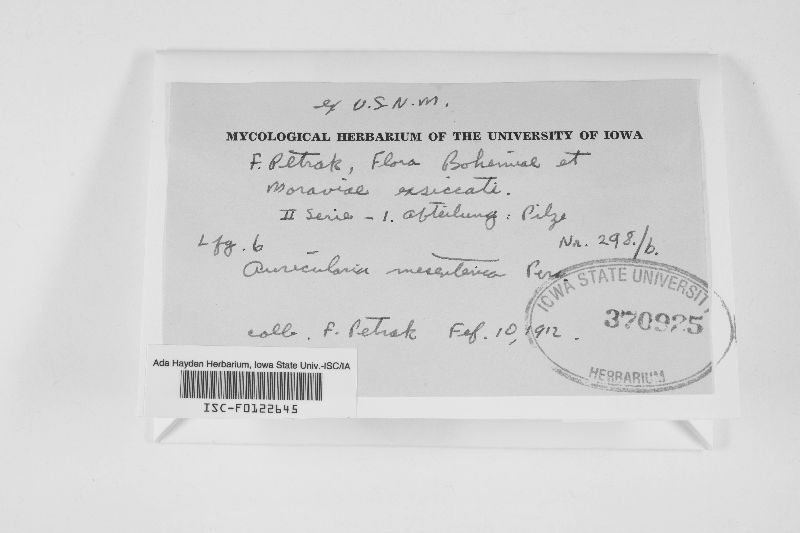 ex U.S.N.M.
MYCOLOGICAL HERBARIUM OF THE UNIVERSITY OF IOWA
F. Petrak, Flora Bohemiae et
Moraviae exsiccati.
II Serie - 1. Abteilung: Pilze
Lfg. 6 Nr. 298/b.
Auricularia mesenterica Pers
IOWA STATE UNIVERSITY
370925
HERBARIUM
coll. F. Petrak Feb. 10, 1912.
Ada Hayden Herbarium, Iowa State Univ.-ISC/IA
ISC-F0122645